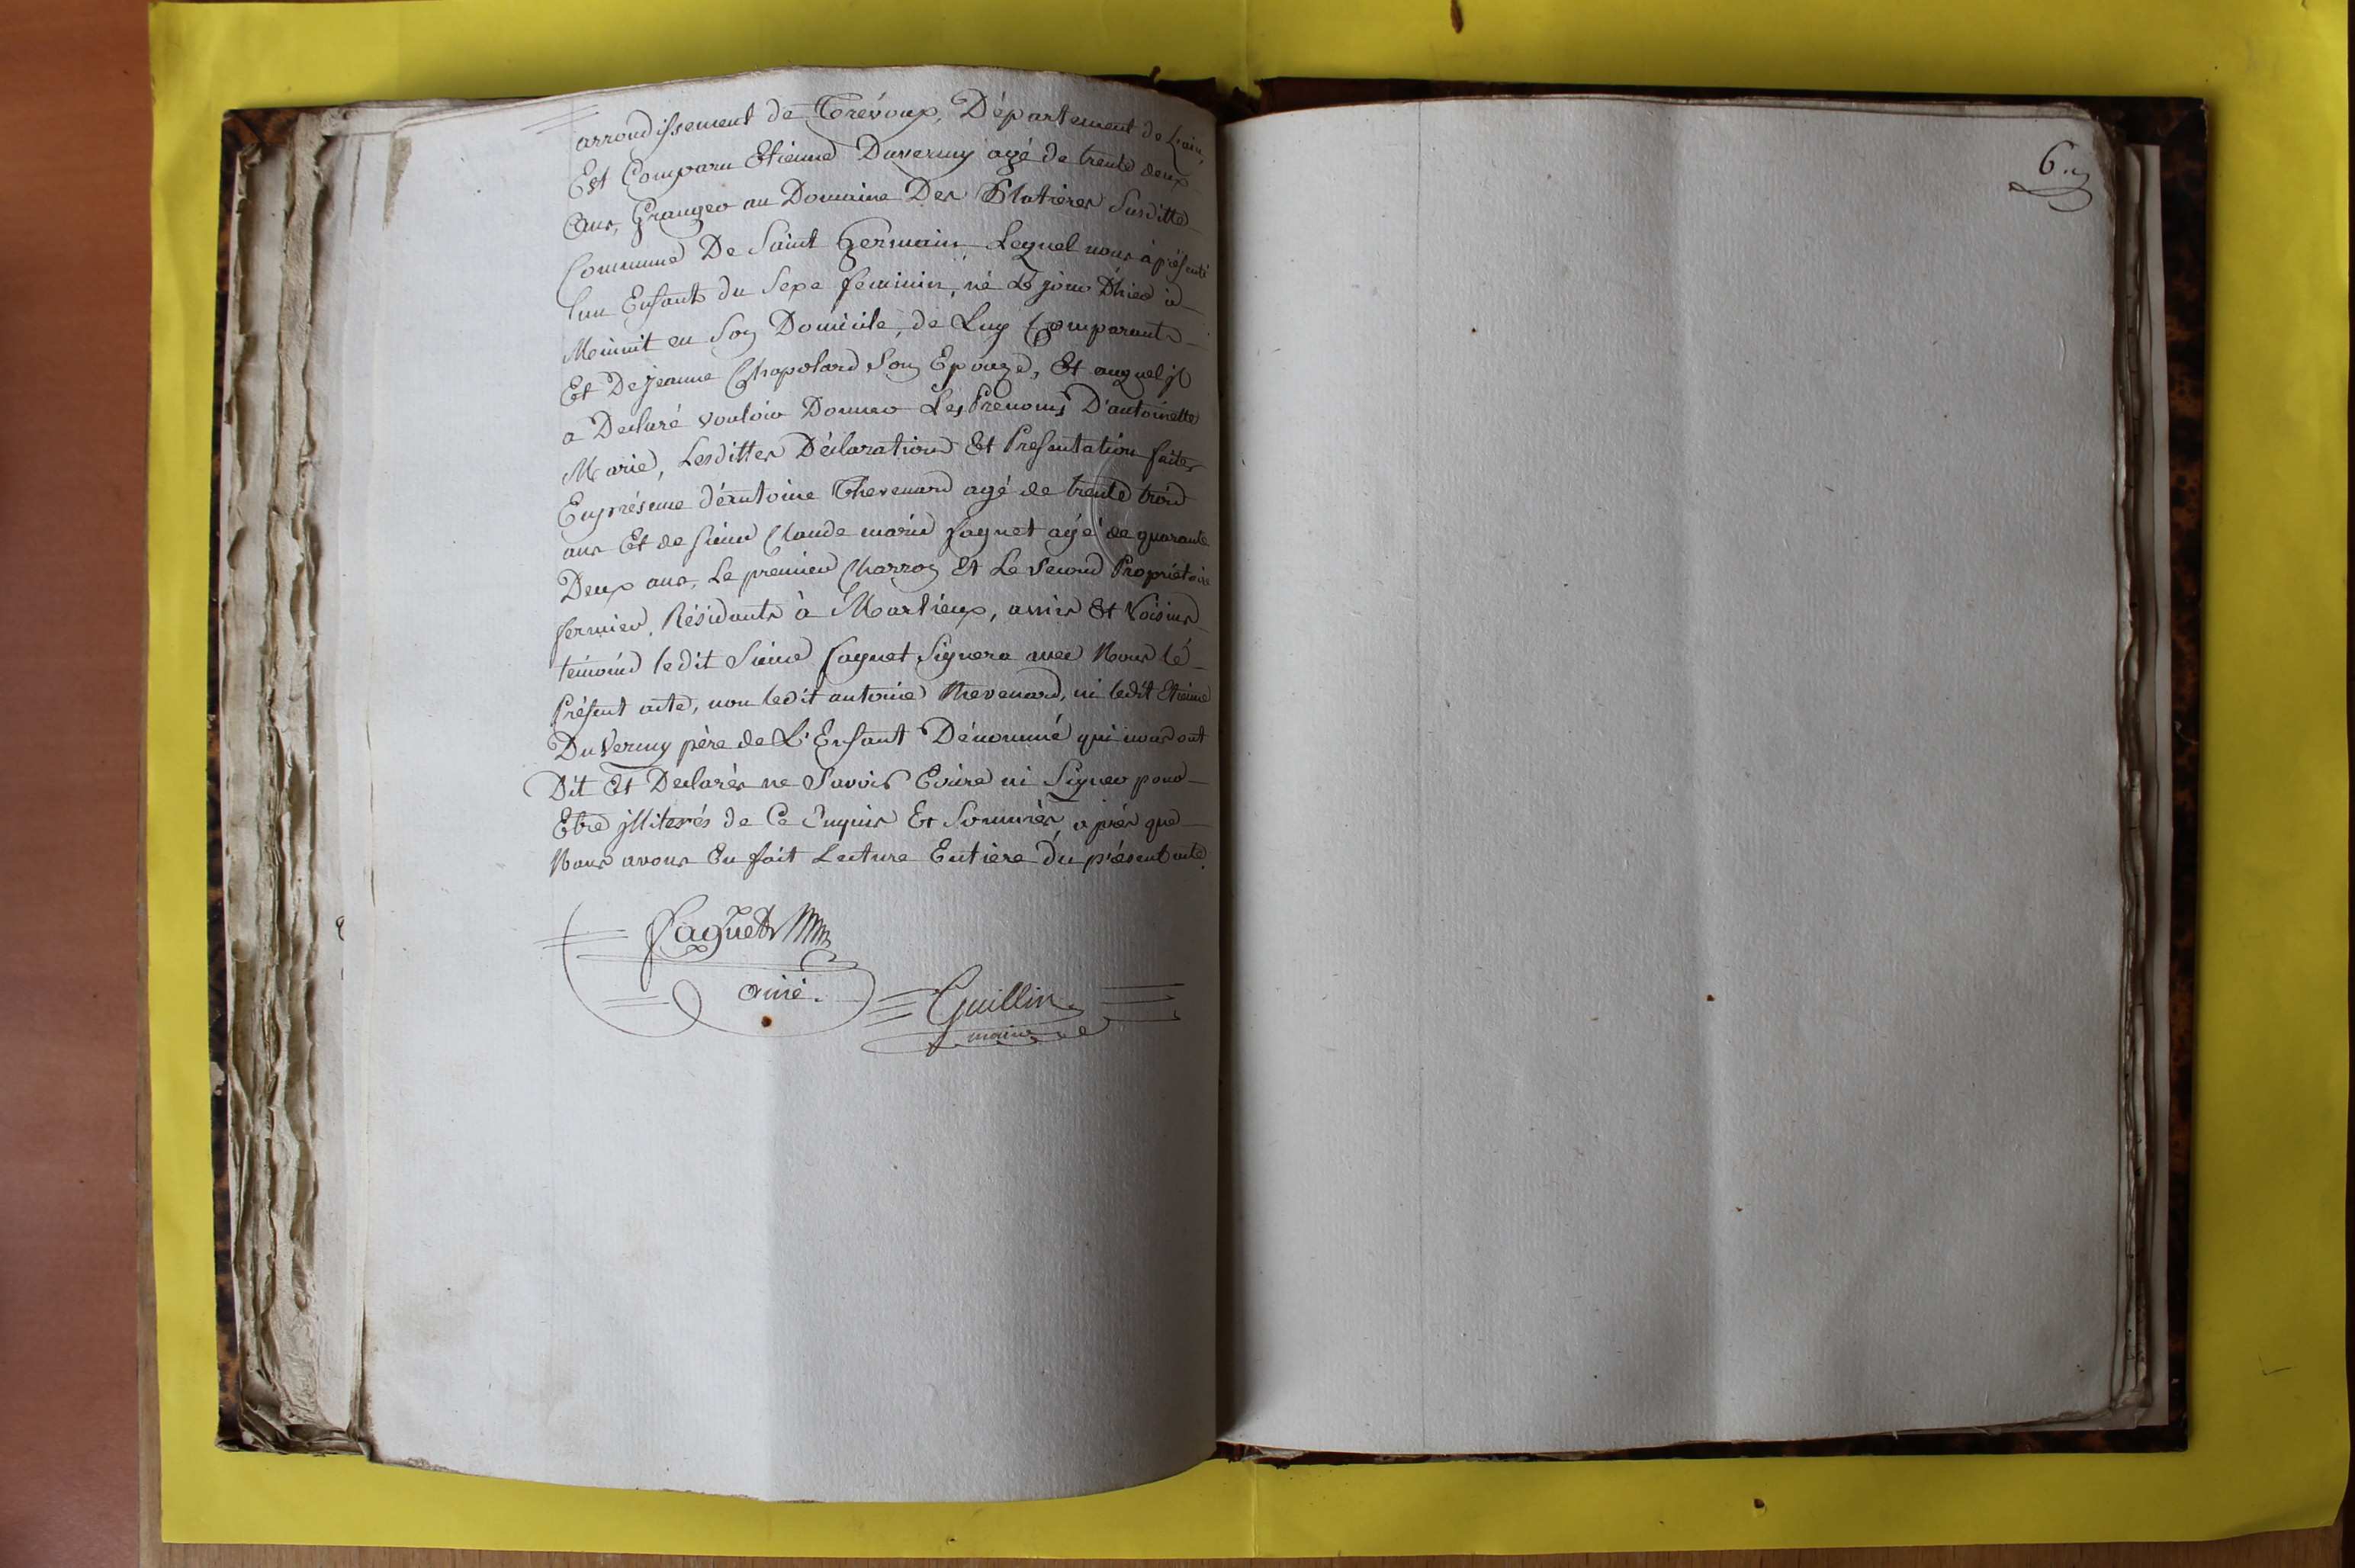 arrondissement de Trévoux, Département de Lain,
Est Comparu Etienne Duverny agé de trente deux
ans, Granger au Domaine Des Platieres Susditte
Commune De Saint Germain Lequel nous à présenté
un Enfants du Sexe feminin, né Le jour D'hier à
Meinuit en Son Domicile, de Luy Comparant
Et De jeanne Chapolard Son Epouze, Et auquel jl
a Declaré vouloir Donner Les Prenoms D'antoinette
Marie, Lesdittes Déclaration Et Presentation faites
En présence d'éantoine Thevenard agé de trente trois
ans Et de sieur Claude marie faguet agé de quarante
Deux ans, Le premier Charron Et Le second Propriétaire
fermier, Résidants à Marlieux, amis Et Voisins
témoins ledit Sieur faguet Signera avec Nous lé
Présent acte, non ledit antoine thevenard, ni ledit Etienne
Duverny père de L'Enfant Dénommé qui nous ont
Dit Et Declarés ne Savoir Ecrire ni Signer pour
Etre jlliterés de Ce Enquis Et Sommés, après que
Nous avons En fait Lecture Entière du présent acte.
faguet
ainé.
Guillin
maire
6.